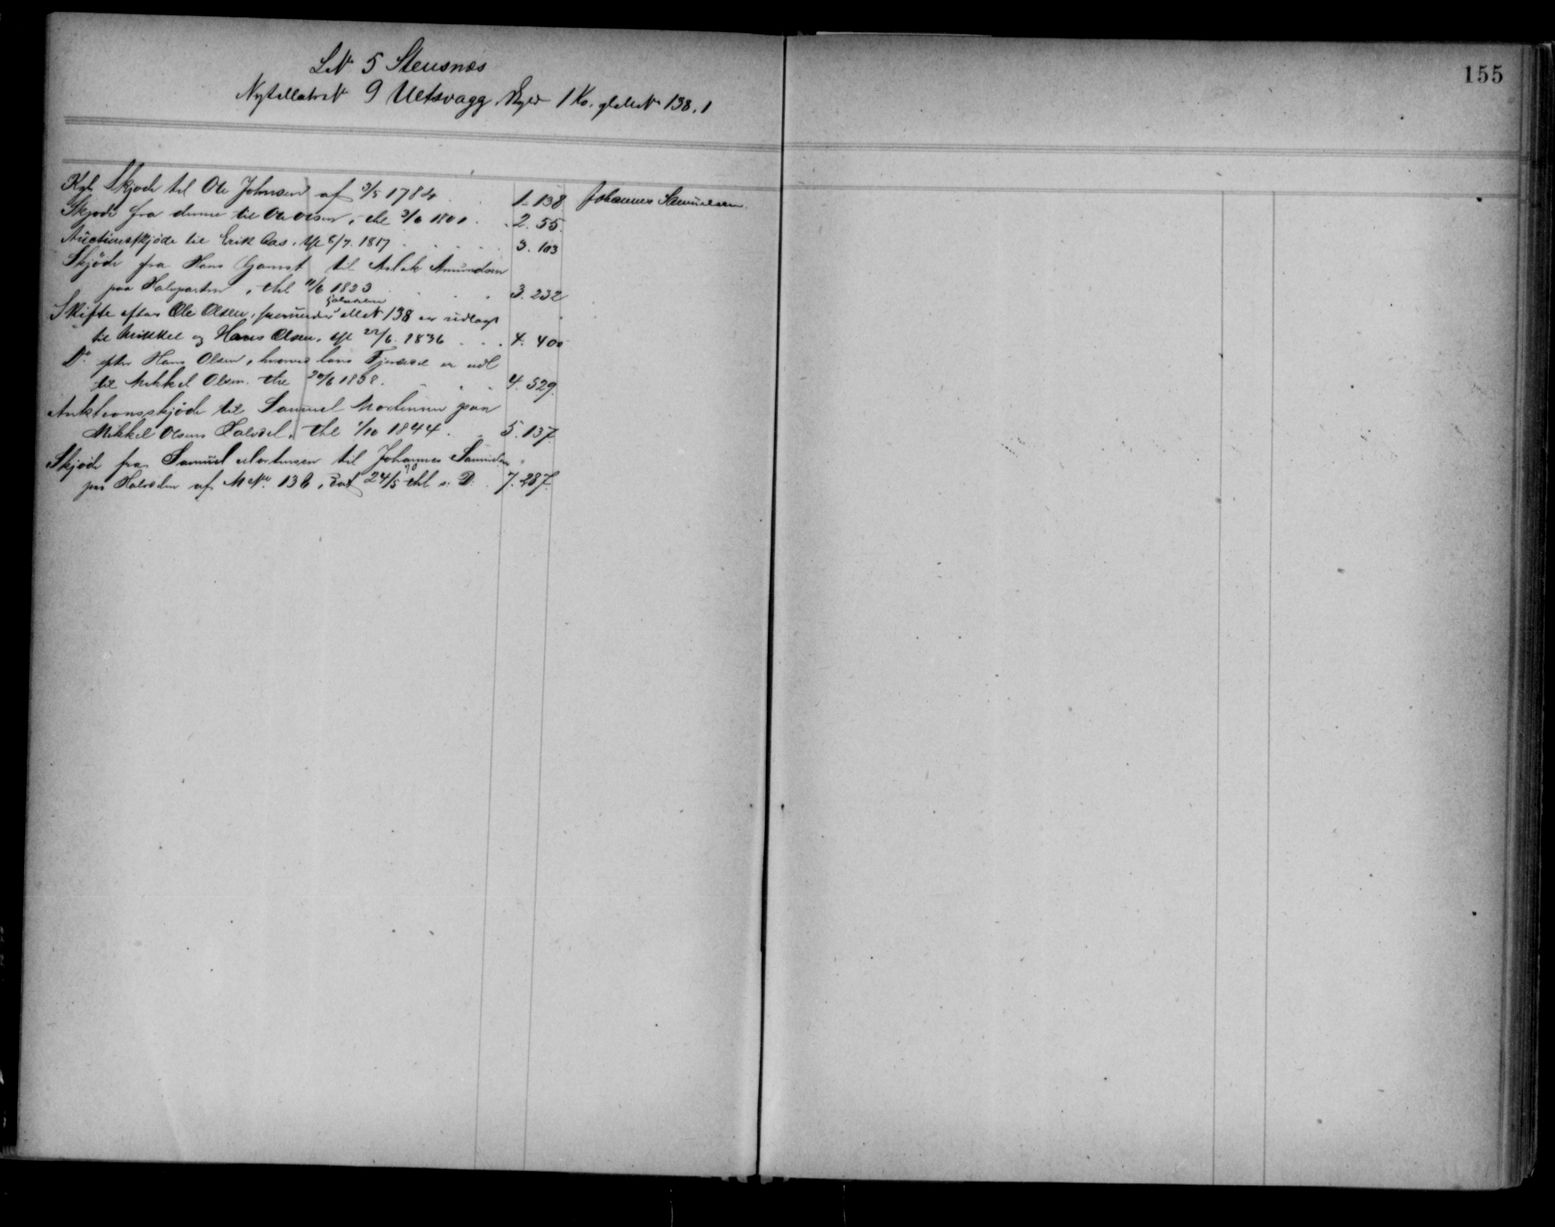 155
LN 5 Stensnæs
Nyt 9 Uctsvagg, Skyld 1 Ko. gl. N 138, 1
Kgl. Skjøde til Ole Johnsen af 3/5 1784 . . 1. 138 Johannes Samuelsen
Skjøde fra denne til Ole Olsen, thl 3/6 1801 . . 2. 55.
Auctionsskjøde til Erik Aas. thl 8/7. 1817 . . . . 3. 103
Skjöde fra Hans Gamst til Aslak Amundsen
paa Halvparten, thl 11/6 1823 . . . . 3. 232
Skifte efter Ole Olsen, hvorunder Halvdelen N 138 er udlagt
til Mikkel og Hans Olsen, thl 22/6. 1836 . . . 4. 400
Do efter Hans Olsen, hvorved hans Fjerdedel er udl
til Mikkel Olsen. thl 20/6 1838. . . . 4. 529.
Auktionsskjöde til Samuel Mortensen paa
Mikkel Olsens Halvdel, thl 1/10 1844 . . 5. 137.
Skjøde fra Samuel Mortensen til Johannes Samuelsen
paa Halvdelen af M No. 138, dat 24/5 70 thl s. D. . 7. 287.